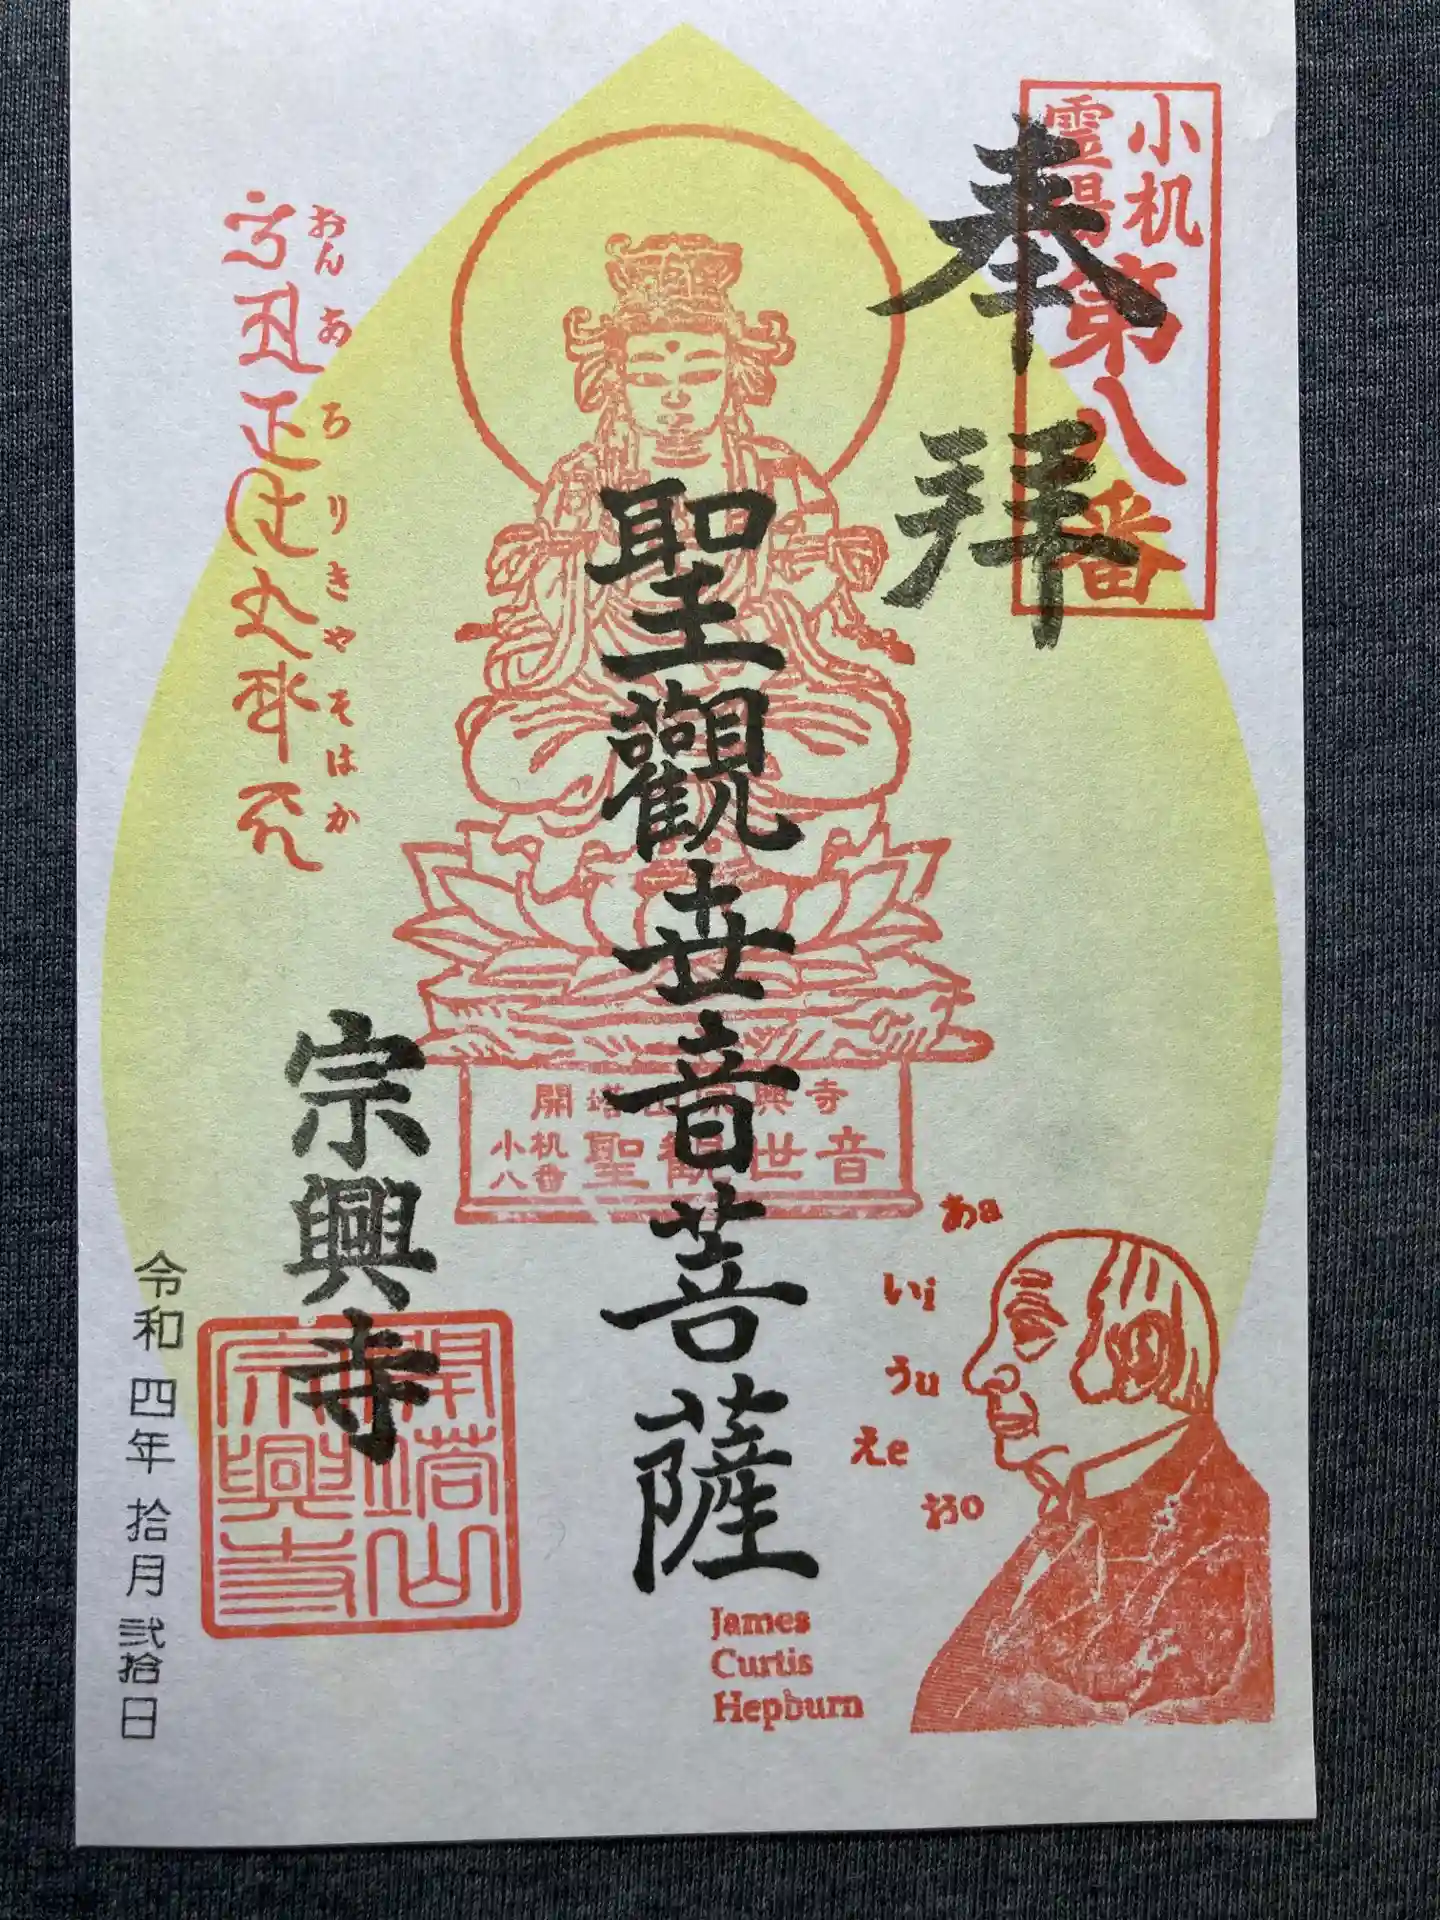 小机
霊場
第八番
奉拝
聖觀世音菩薩
おん あ ろ り き や そ は か
開塔山宗興寺
小机
八番
聖観世音
宗興寺
開塔山
宗興寺
令和四年拾月弐拾日
あa
いi
うu
えe
おo
James
Curtis
Hepburn